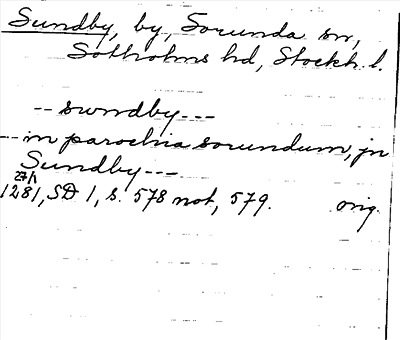 Sundby, by, Sorunda sn,
Sotholms hd, Stockh. l.
-- swndby---
-- in parochia sorundum, jn
Sundby---
27/1
1281, SD 1, s. 578 not, 579. orig.